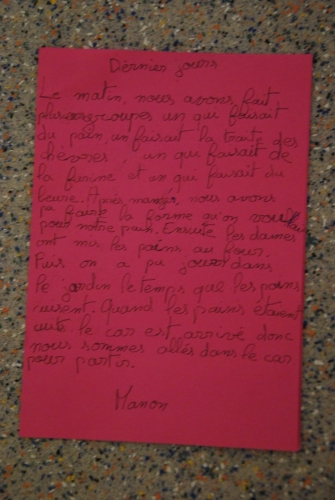 Dernier jours
Le matin, nous avons fait
plusieurs groupes un qui faisait
du pain, un faisait la traite des
chèvres, un qui faisait de
la farine et un qui faisait du
beure. Après manger, nous avons
pu faire la forme qu'on voulait
pour notre pain. Ensuite les dames
ont mis les pains au four.
Puis on a pu jouer dans
le jardin le temps que les pains
cuisent. Quand les pains étaient
cuits le car est arrivé donc
nous sommes allés dans le car
pour partir.
Manon